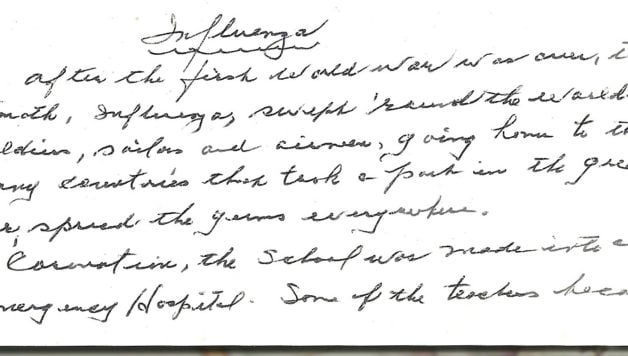 Influenza
after the first World war was over, t
Influenza, swept 'round the world
sailors and airmen, going home to
countries that took a part in the gre
spread the germs everywhere.
Coronation, the School was made into a
mergency Hospital. Some of the teachers beca